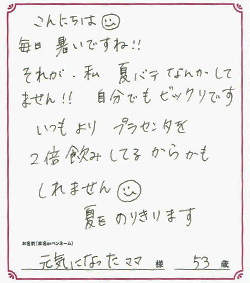 こんにちは
毎日 暑いですね!!
それが、私 夏バテなんかして
ません!! 自分でもビックリです
いつもより プラセンタを
2倍飲みしてるからかも
しれません
夏を のりきります
お名前(本名orペンネーム)
元気になったママ 様 53 歳